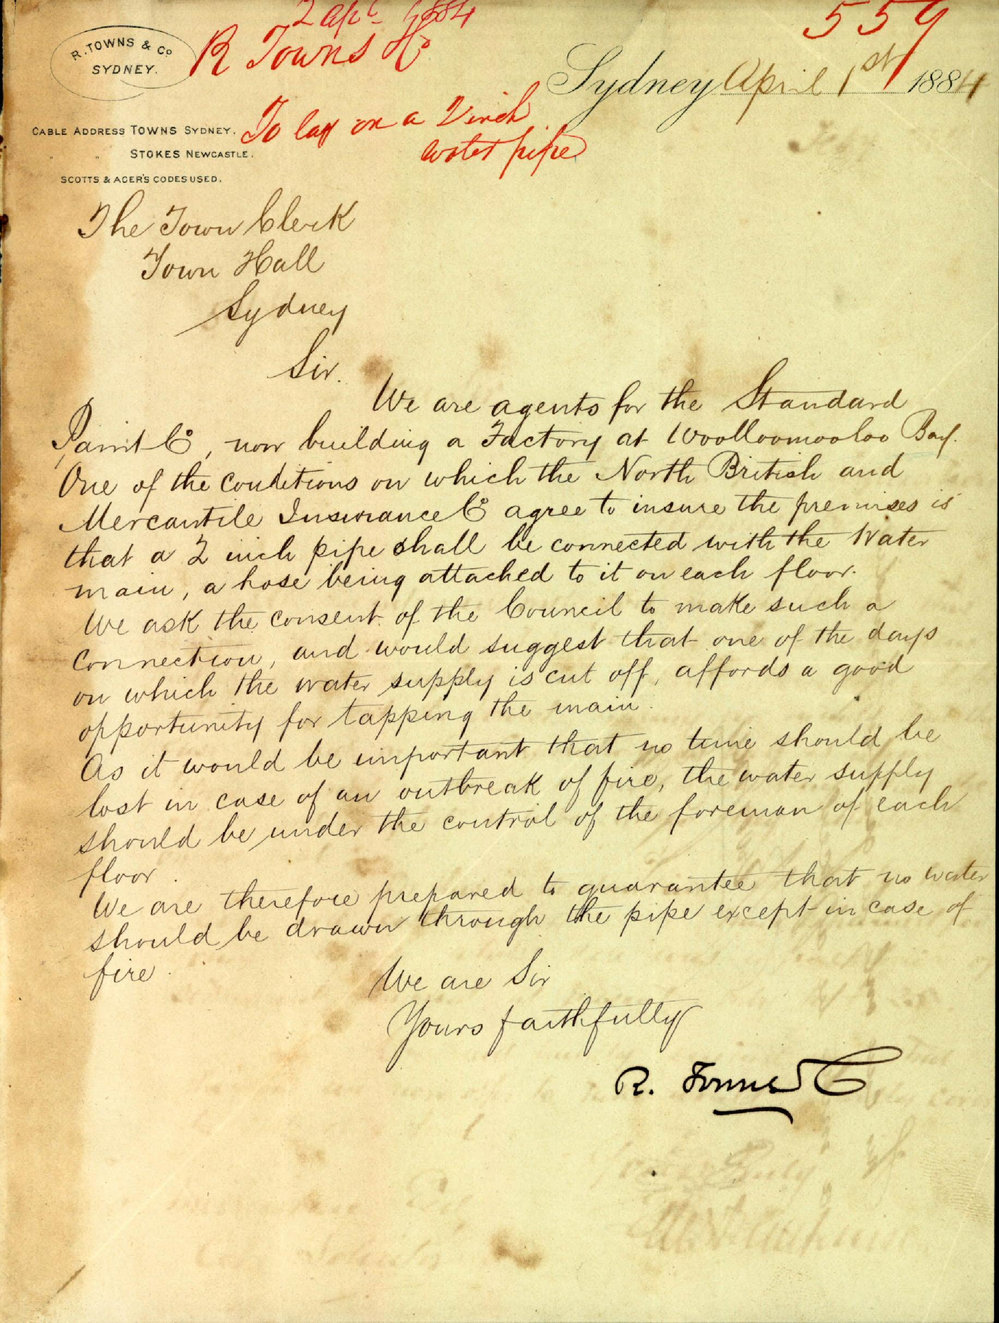 2 apl 1884
559
R Towns & Co
R. TOWNS & Co
SYDNEY.
Sydney April 1st 1884
CABLE ADDRESS TOWNS SYDNEY.
" " STOKES NEWCASTLE.
SCOTTS & AGER'S CODES USED.
To lay on a 2 inch
water pipe
The Town Clerk
Town Hall
Sydney
Sir.
We are agents for the Standard
Paint Co, now building a Factory at Woolloomooloo Bay.
One of the conditions on which the North British and
Mercantile Insurance Co agree to insure the premises is
that a 2 inch pipe shall be connected with the Water
main, a hose being attached to it on each floor.
We ask the consent of the Council to make such a
connection, and would suggest that one of the days
on which the water supply is cut off, affords a good
opportunity for tapping the main.
As it would be important that no time should be
lost in case of an outbreak of fire, the water supply
should be under the control of the foreman of each
floor.
We are therefore prepared to guarantee that no water
should be drawn through the pipe except in case of
fire.
We are Sir
Yours faithfully
R. Towns & Co